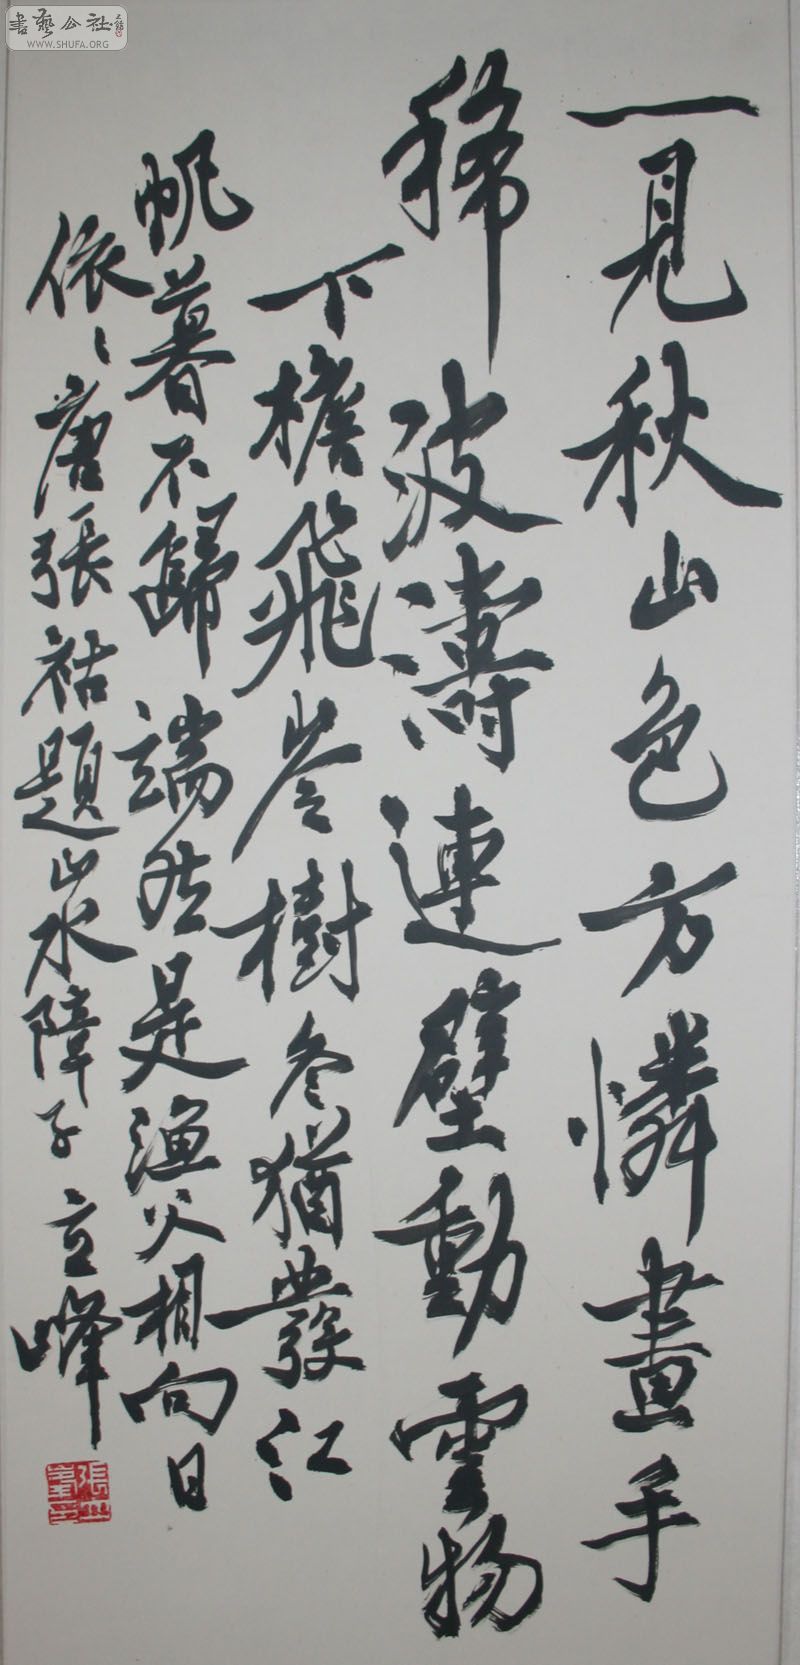 一見秋山色方憐畫手
稀波濤連壁動雲物
下檐飛岑樹冬猶發江
帆暮不歸端然是漁父相向日
依〻唐張祜題山水障子立峰
書藝公社
WWW.SHUFA.ORG